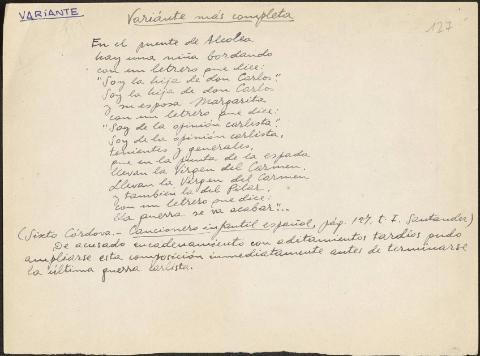 VARIANTE
Variante más completa
127
En el puente de Alcolea
hay una niña bordando
con un letrero que dice:
"Soy la hija de don Carlos".
Soy la hija de don Carlos
y su esposa Margarita
con un letrero que dice:
"Soy de la opinión carlista".
Soy de la opinión carlista,
tenientes y generales,
que en la punta de la espada
llevan la Virgen del Carmen.
Llevan la Virgen del Carmen
y también la del Pilar,
con un letrero que dice:
"La guerra se va acabar"..
(Sixto Córdova.- Cancionero infantil español, pág. 127, t. I. Santander)
De acusado encadenamiento con aditamientos tardíos pudo
ampliarse esta composición inmediatamente antes de terminarse
la última guerra carlista.